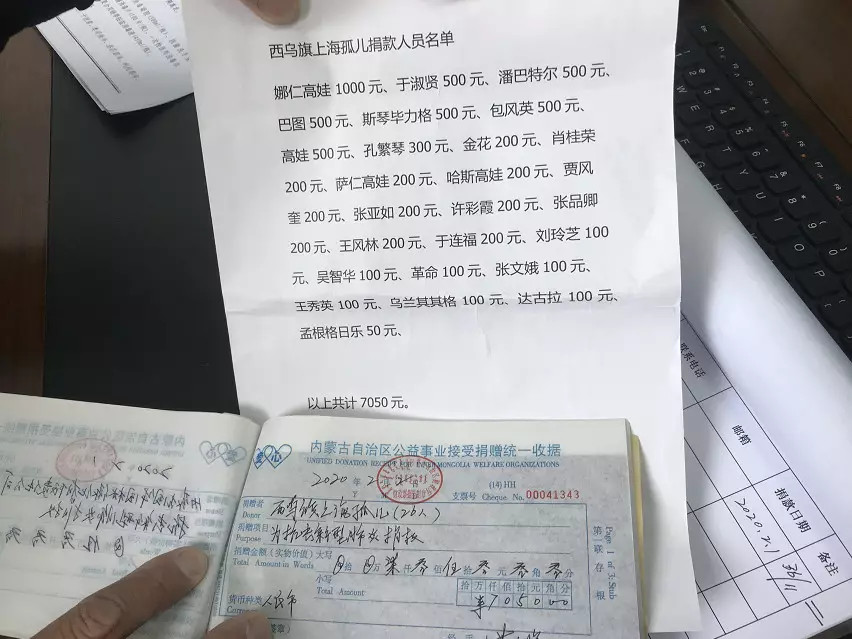 西乌旗上海孤儿捐款人员名单
娜仁高娃 1000 元、于淑贤 500 元、潘巴特尔 500 元、
巴图 500 元、斯琴毕力格 500 元、包风英 500 元、
高娃 500 元、孔繁琴 300 元、金花 200 元、肖桂荣
200 元、萨仁高娃 200 元、哈斯高娃 200 元、贾风
奎 200 元、张亚如 200 元、许彩霞 200 元、张品卿
200 元、王风林 200 元、于连福 200 元、刘玲芝 100
元、吴智华 100 元、革命 100 元、张文娥 100 元、
王秀英 100 元、乌兰其其格 100 元、达古拉 100 元、
孟根格日乐 50 元、
以上共计 7050 元。
内蒙古自治区公益事业接受捐赠统一收据
UNIFIED DONATION RECEIPT FOR INNER MONGOLIA WELFARE ORGANIZATIONS
2020 年 2
(14) HH
支票号 Cheque No. 00041343
捐赠者 西乌旗上海孤儿(26人)
Donor
捐赠项目 为抗击新冠肺炎捐款
Purpose
捐赠金额(实物价值)大写 拾 万 柒 仟 零 佰 伍 拾 零 元 零 角 零 分
Total Amount in Words
小写
Total Amount
拾 万 仟 佰 拾 元 角 分
¥ 7 0 5 0 0 0
货币种类 人民币
第一联 存根
Page 1 of 3:Stub
联系电话
邮箱
捐款日期
备注
2020.2.1